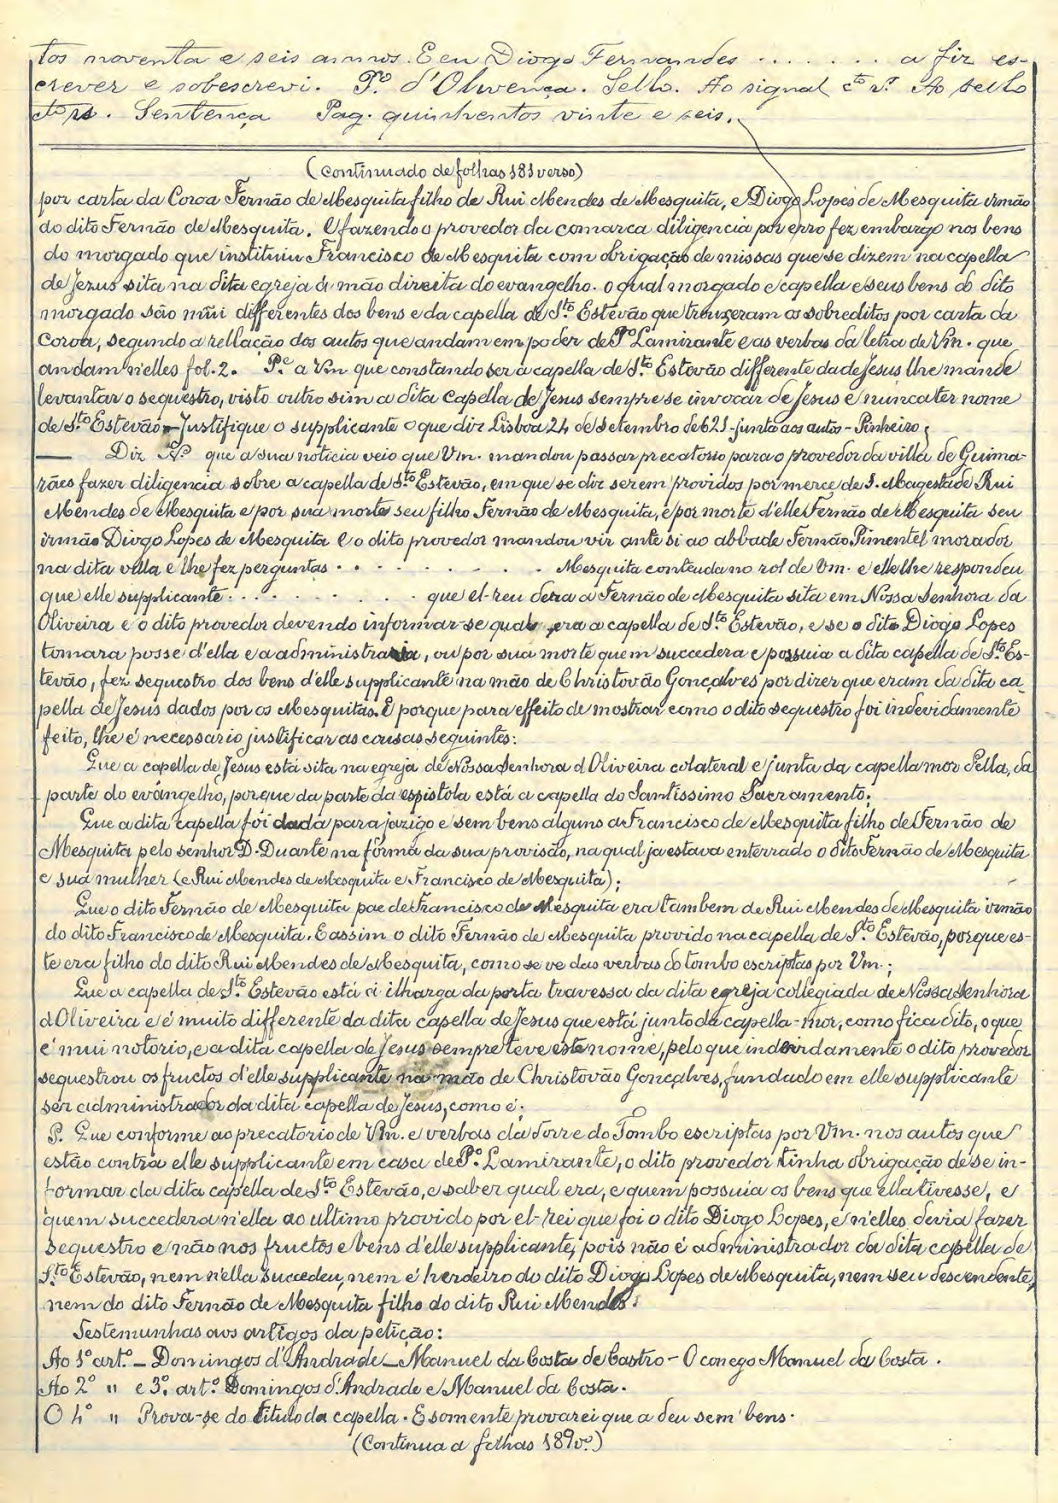 tos noventa e seis annos. E eu Diogo Fernandes . . . . . . . a fiz es-
crever e sobescrevi. Pº d'Olivença. Sello. Ao signal cto rs. Ao sello
cto rs. Sentença Pag. quinhentos vinte e seis.
(continuado de folhas 181 verso)
por carta da Coroa Fernão de Mesquita filho de Rui Mendes de Mesquita, e Diogo Lopes de Mesquita irmão
do dito Fernão de Mesquita. E fazendo o provedor da comarca diligencia por erro fez embargo nos bens
do morgado que instituiu Francisco de Mesquita com obrigação de missas que se dizem na capella
de Jezus sita na dita egreja á mão direita do evangelho. o qual morgado e capella e seus bens do dito
morgado são mũi differentes dos bens e da capella de Sto Estevão que trouxeram os sobreditos por carta da
Coroa, segundo a rellação dos autos que andam em poder de Pº Lamirante e as verbas da letra de Vm. que
andam n'elles fol. 2. Pe. a Vm que constando ser a capella de Sto Estevão differente da de Jesus lhe mande
levantar o sequestro, visto outro sim a dita Capella de Jesus sempre se invocar de Jesus e nunca ter nome
de Sto Estevão - Justifique o supplicante o que diz Lisboa 24 de Setembro de 621 - junta aos autos - Pinheiro;
— Diz A. que a sua noticia veio que Vm. mandou passar precatorio para o provedor da villa de Guima-
rães fazer diligencia sobre a capella de Sto Estevão, em que se diz serem providos por merce de S. Magestade Rui
Mendes de Mesquita e por sua morte seu filho Fernão de Mesquita, e por morte d'elle Fernão de Mesquita seu
irmão Diogo Lopes de Mesquita E o dito provedor mandou vir ante si ao abbade Fernão Pimentel morador
na dita villa e lhe fez perguntas . . . . . . . . . . Mesquita contenda no rol de Vm. e elle lhe respondeu
que elle supplicante . . . . . . . . . . que el-reu dera a Fernão de Mesquita sita em Nossa Senhora da
Oliveira e o dito provedor devendo informar-se qual era a capella de Sto Estevão, e se o dito Diogo Lopes
tomara posse d'ella e a administrava, ou por sua morte quem succedera e possuia a dita capella de Sto Es-
tevão, fez sequestro dos bens d'elle supplicante na mão de Christovão Gonçalves por dizer que eram da dita ca-
pella de Jesus dados por os Mesquitas. E porque para effeito de mostrar como o dito sequestro foi indevidamente
feito, lhe é necessario justificar as cousas seguintes:
Que a capella de Jesus está sita na egreja de Nossa Senhora d'Oliveira colateral e junta da capella mor d'ella, da
parte do evangelho, porque da parte da espistola está a capella do Santissimo Sacramento;
Que a dita capella foi dada para jazigo e sem bens alguns a Francisco de Mesquita filho de Fernão de
Mesquita pelo senhor D. Duarte na forma da sua provisão, na qual ja estava enterrado o dito Fernão de Mesquita
e sua mulher (e Rui Mendes de Mesquita e Francisco de Mesquita);
Que o dito Fernão de Mesquita pae de Francisco de Mesquita era tambem de Rui Mendes de Mesquita irmão
do dito Francisco de Mesquita. E assim o dito Fernão de Mesquita provido na capella de Sto Estevão, porque es-
te era filho do dito Rui Mendes de Mesquita, como se ve das verbas do tombo escriptas por Vm.;
Que a capella de Sto Estevão está á ilharga da porta travessa da dita egreja collegiada de Nossa Senhora
d'Oliveira e é muito differente da dita capella de Jesus que está junto da capella-mor, como fica dito, o que
é mui notorio, e a dita capella de Jesus sempre teve este nome, pelo que indevidamente o dito provedor
sequestrou os fructos d'elle supplicante na mão de Christovão Gonçalves, fundado em elle supplicante
ser administrador da dita capella de Jesus, como é;
P. Que conforme ao precatorio de Vm. e verbas da Torre do Tombo escriptas por Vm. nos autos que
estão contra elle supplicante em casa de Pº Lamirante, o dito provedor tinha obrigação de se in-
formar da dita capella de Sto Estevão, e saber qual era, e quem possuia os bens que ella tivesse, e
quem succedera n'ella ao ultimo provido por el-rei que foi o dito Diogo Lopes, e n'elles devia fazer
sequestro e não nos fructos e bens d'elle supplicante, pois não é administrador da dita capella de
Sto Estevão, nem n'ella succedeu, nem é herdeiro do dito Diogo Lopes de Mesquita, nem seu descendente,
nem do dito Fernão de Mesquita filho do dito Rui Mendes.
Testemunhas aos artigos da petição:
Ao 1º artº - Domingos d'Andrade - Manuel da Costa de Castro - O conego Manuel da Costa.
Ao 2º " e 3º artº Domingos d'Andrade e Manuel da Costa.
O 4º " Prova-se do titulo da capella. E somente provarei que a deu sem bens.
(Continua a folhas 189 vº)